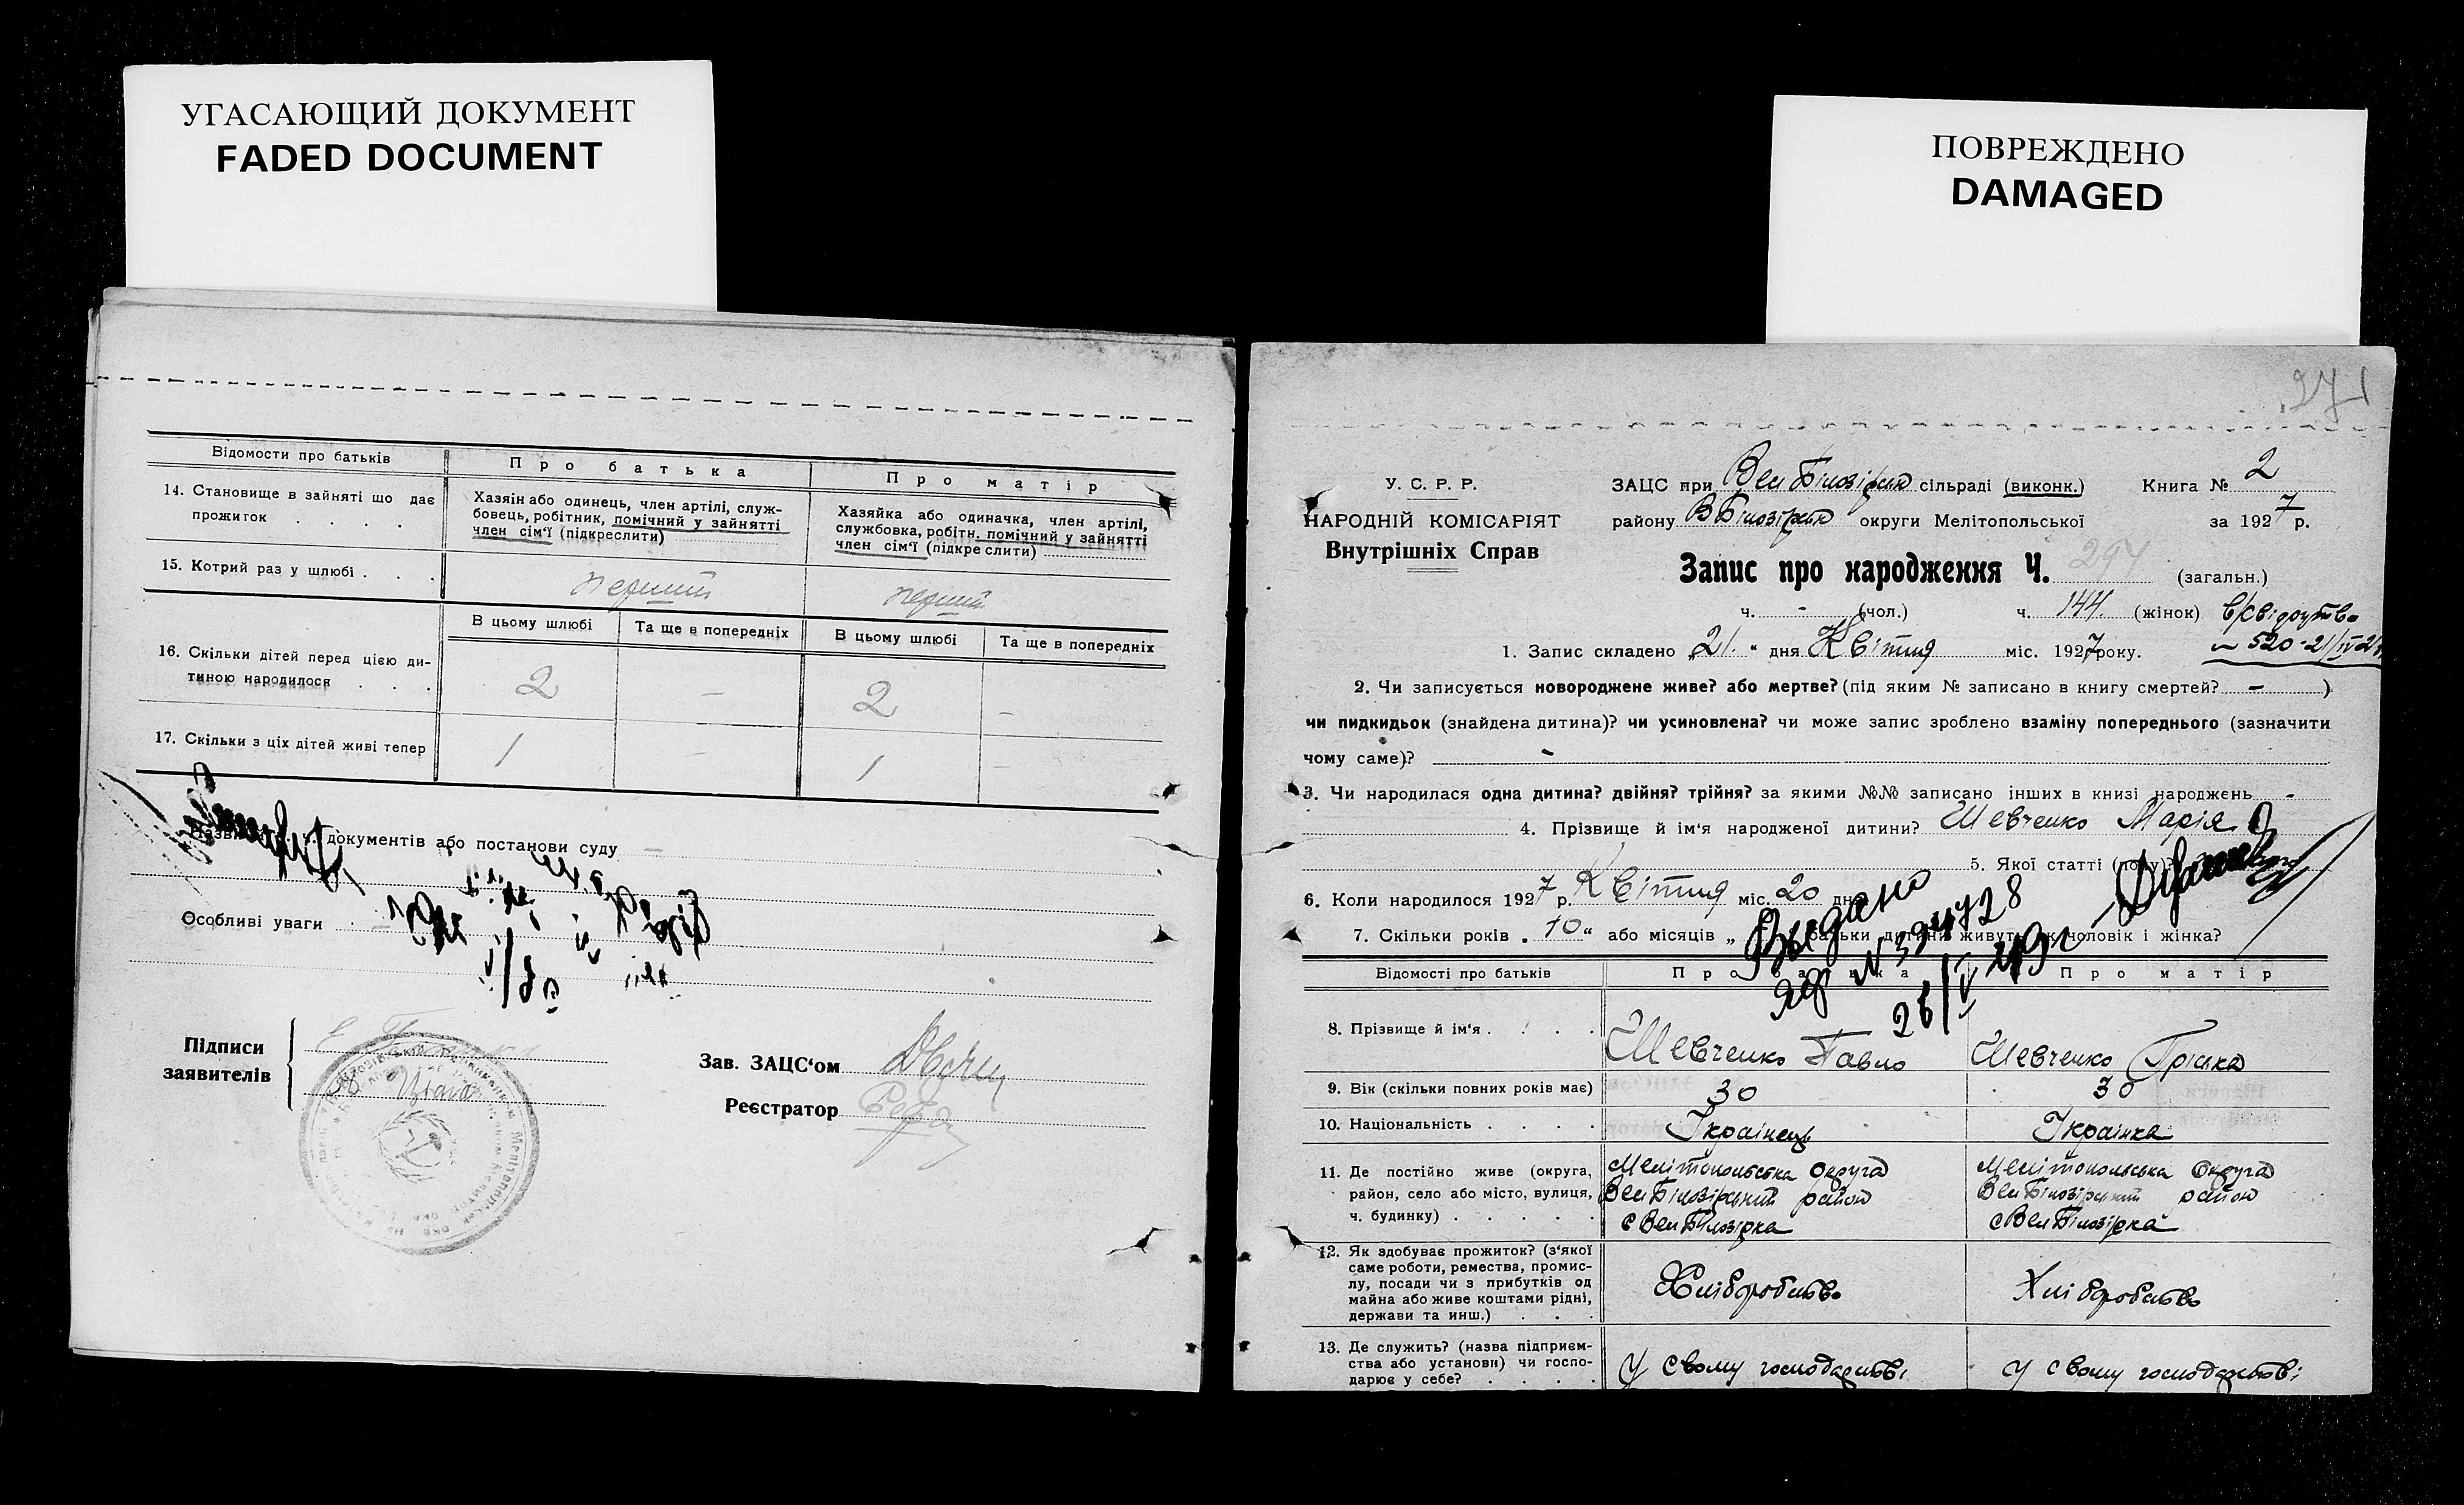 УГАСАЮЩИЙ ДОКУМЕНТ
FADED DOCUMENT
ПОВРЕЖДЕНО
DAMAGED
Відомости про батьків
Про батька
Про матір
14. Становище в зайняті що дає
прожиток . . . .
Хазяїн або одинець, член артілі, служ-
бовець, робітник, помічний у зайнятті
член сім'ї (підкреслити)
Хазяйка або одиначка, член артілі,
службовка, робітн. помічний у зайнятті
член сім'ї (підкреслити)
15. Котрий раз у шлюбі . . .
перший
перший
В цьому шлюбі
Та ще в попередніх
В цьому шлюбі
Та ще в попередніх
16. Скільки дітей перед цією ди-
тиною народилося . . .
2 - 2 -
17. Скільки з ціх дітей живі тепер
1 - 1 -
документів або постанови суду -
Особливі уваги
Підписи
заявителів
Зав. ЗАЦС'ом
Реєстратор
271
У. С. Р. Р.
НАРОДНІЙ КОМІСАРІЯТ
Внутрішніх Справ
ЗАЦС при Вел Білозірськ сільраді (виконк.) Книга № 2
району В Білозірськ округи Мелітопольської за 1927 р.
Запис про народження Ч. 294 (загальн.)
ч. - (чол.) ч. 144. (жінок)
520-21/IV-27
1. Запис складено „21." дня Квітня міс. 1927 року.
2. Чи записується новороджене живе? або мертве? (під яким № записано в книгу смертей? - )
чи пидкидьок (знайдена дитина)? чи усиновлена? чи може запис зроблено взаміну попереднього (зазначити
чому саме)? -
3. Чи народилася одна дитина? двійня? трійня? за якими №№ записано інших в книзі народжень -
4. Прізвище й ім'я народженої дитини? Шевченко Марія
5. Якої статті (полу)?
6. Коли народилося 1927 р. Квітня міс. 20 дня
7. Скільки років „10" або місяців „ батьки дитини живуть як чоловік і жінка?
Выдано
№ 394728
26/V 49г
Відомості про батьків
Про батька
Про матір
8. Прізвище й ім'я . . . .
Шевченко Павло
Шевченко Грішка
9. Вік (скільки повних років має)
30
30
10. Національність . . . .
Українець
Українка
11. Де постійно живе (округа,
район, село або місто, вулиця,
ч. будинку) . . . . .
Мелітопольська округа
Вел Білозірський район
с Вел Білозірка
Мелітопольська округа
Вел Білозірський район
с Вел Білозірка
12. Як здобуває прожиток? (з'якої
саме роботи, ремества, промис-
лу, посади чи з прибутків од
майна або живе коштами рідні,
держави та инш.) . . .
Хліборобство
Хліборобство
13. Де служить? (назва підприєм-
ства або установи) чи госпо-
дарює у себе? . . . .
У свому господарстві
У свому господарстві